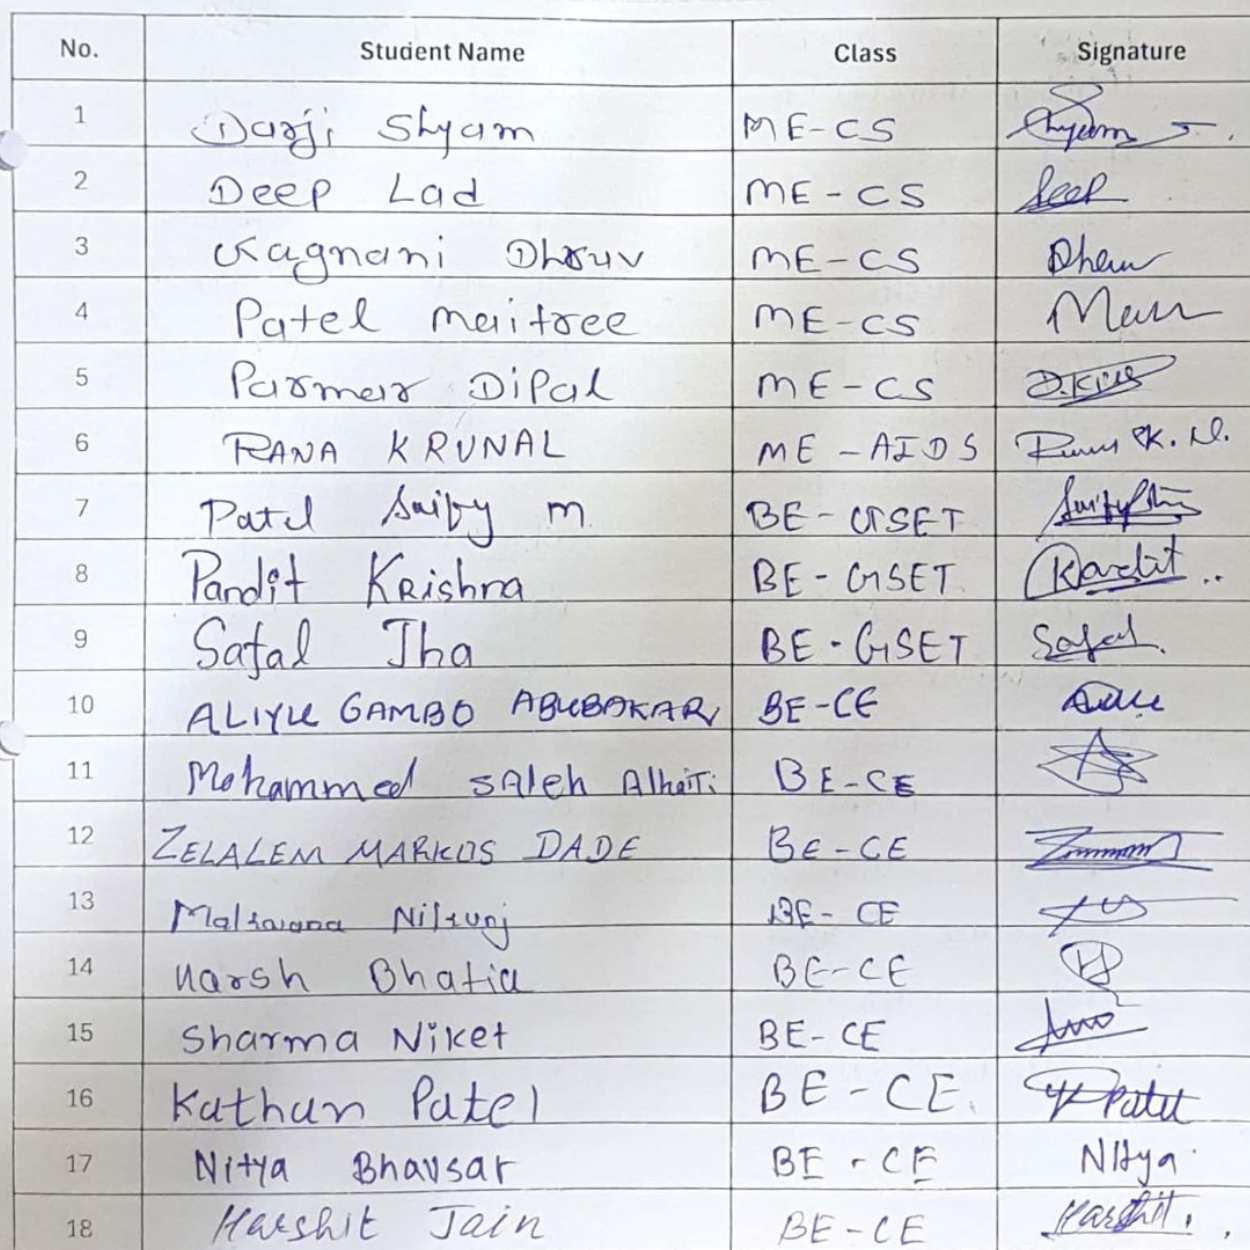 No. Student Name Class Signature
1 Darji Shyam ME-CS Shyam
2 Deep Lad ME-CS Deep
3 Kagnani Dhruv ME-CS Dhruv
4 Patel Maitree ME-CS
5 Parmar Dipal ME-CS
6 RANA KRUNAL ME-AIDS Rana K. N.
7 Patel m BE-GSET
8 Pandit Krishna BE-GSET Pandit
9 Safal Jha BE-GSET Safal
10 ALIYU GAMBO ABUBAKAR BE-CE
11 Mohammed SAleh Alheiti BE-CE
12 ZELALEM MARKOS DADE BE-CE
13 BE-CE
14 Harsh Bhatia BE-CE
15 Sharma Niket BE-CE
16 Kathan Patel BE-CE Patel
17 Nitya Bhavsar BE-CE Nitya
18 Harshit Jain BE-CE Harshit.